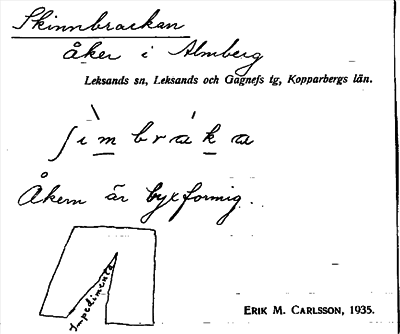 Skinnbrackan
åker i Almberg
Leksands sn, Leksands och Gagnefs tg, Kopparbergs län.
ʃìmbráka
Åkern är byxformig.
Impedimenta
ERIK M. CARLSSON, 1935.